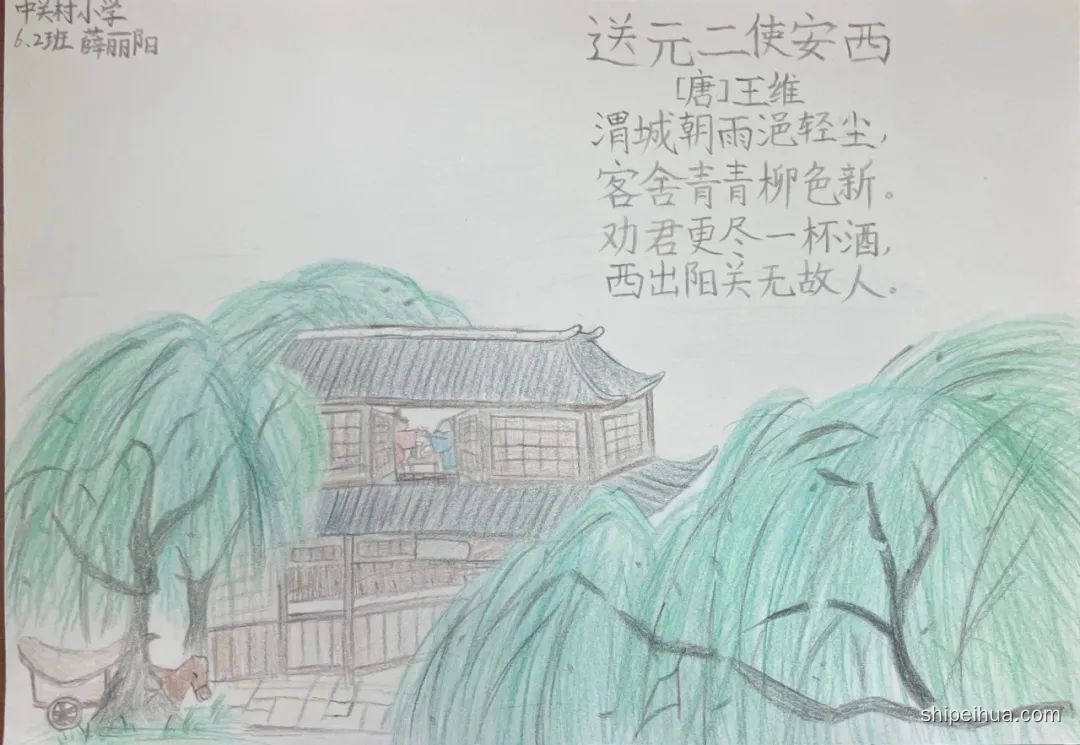 中关村小学
6.2班 薛丽阳
送元二使安西
[唐]王维
渭城朝雨浥轻尘,
客舍青青柳色新。
劝君更尽一杯酒,
西出阳关无故人。
shipeihua.com